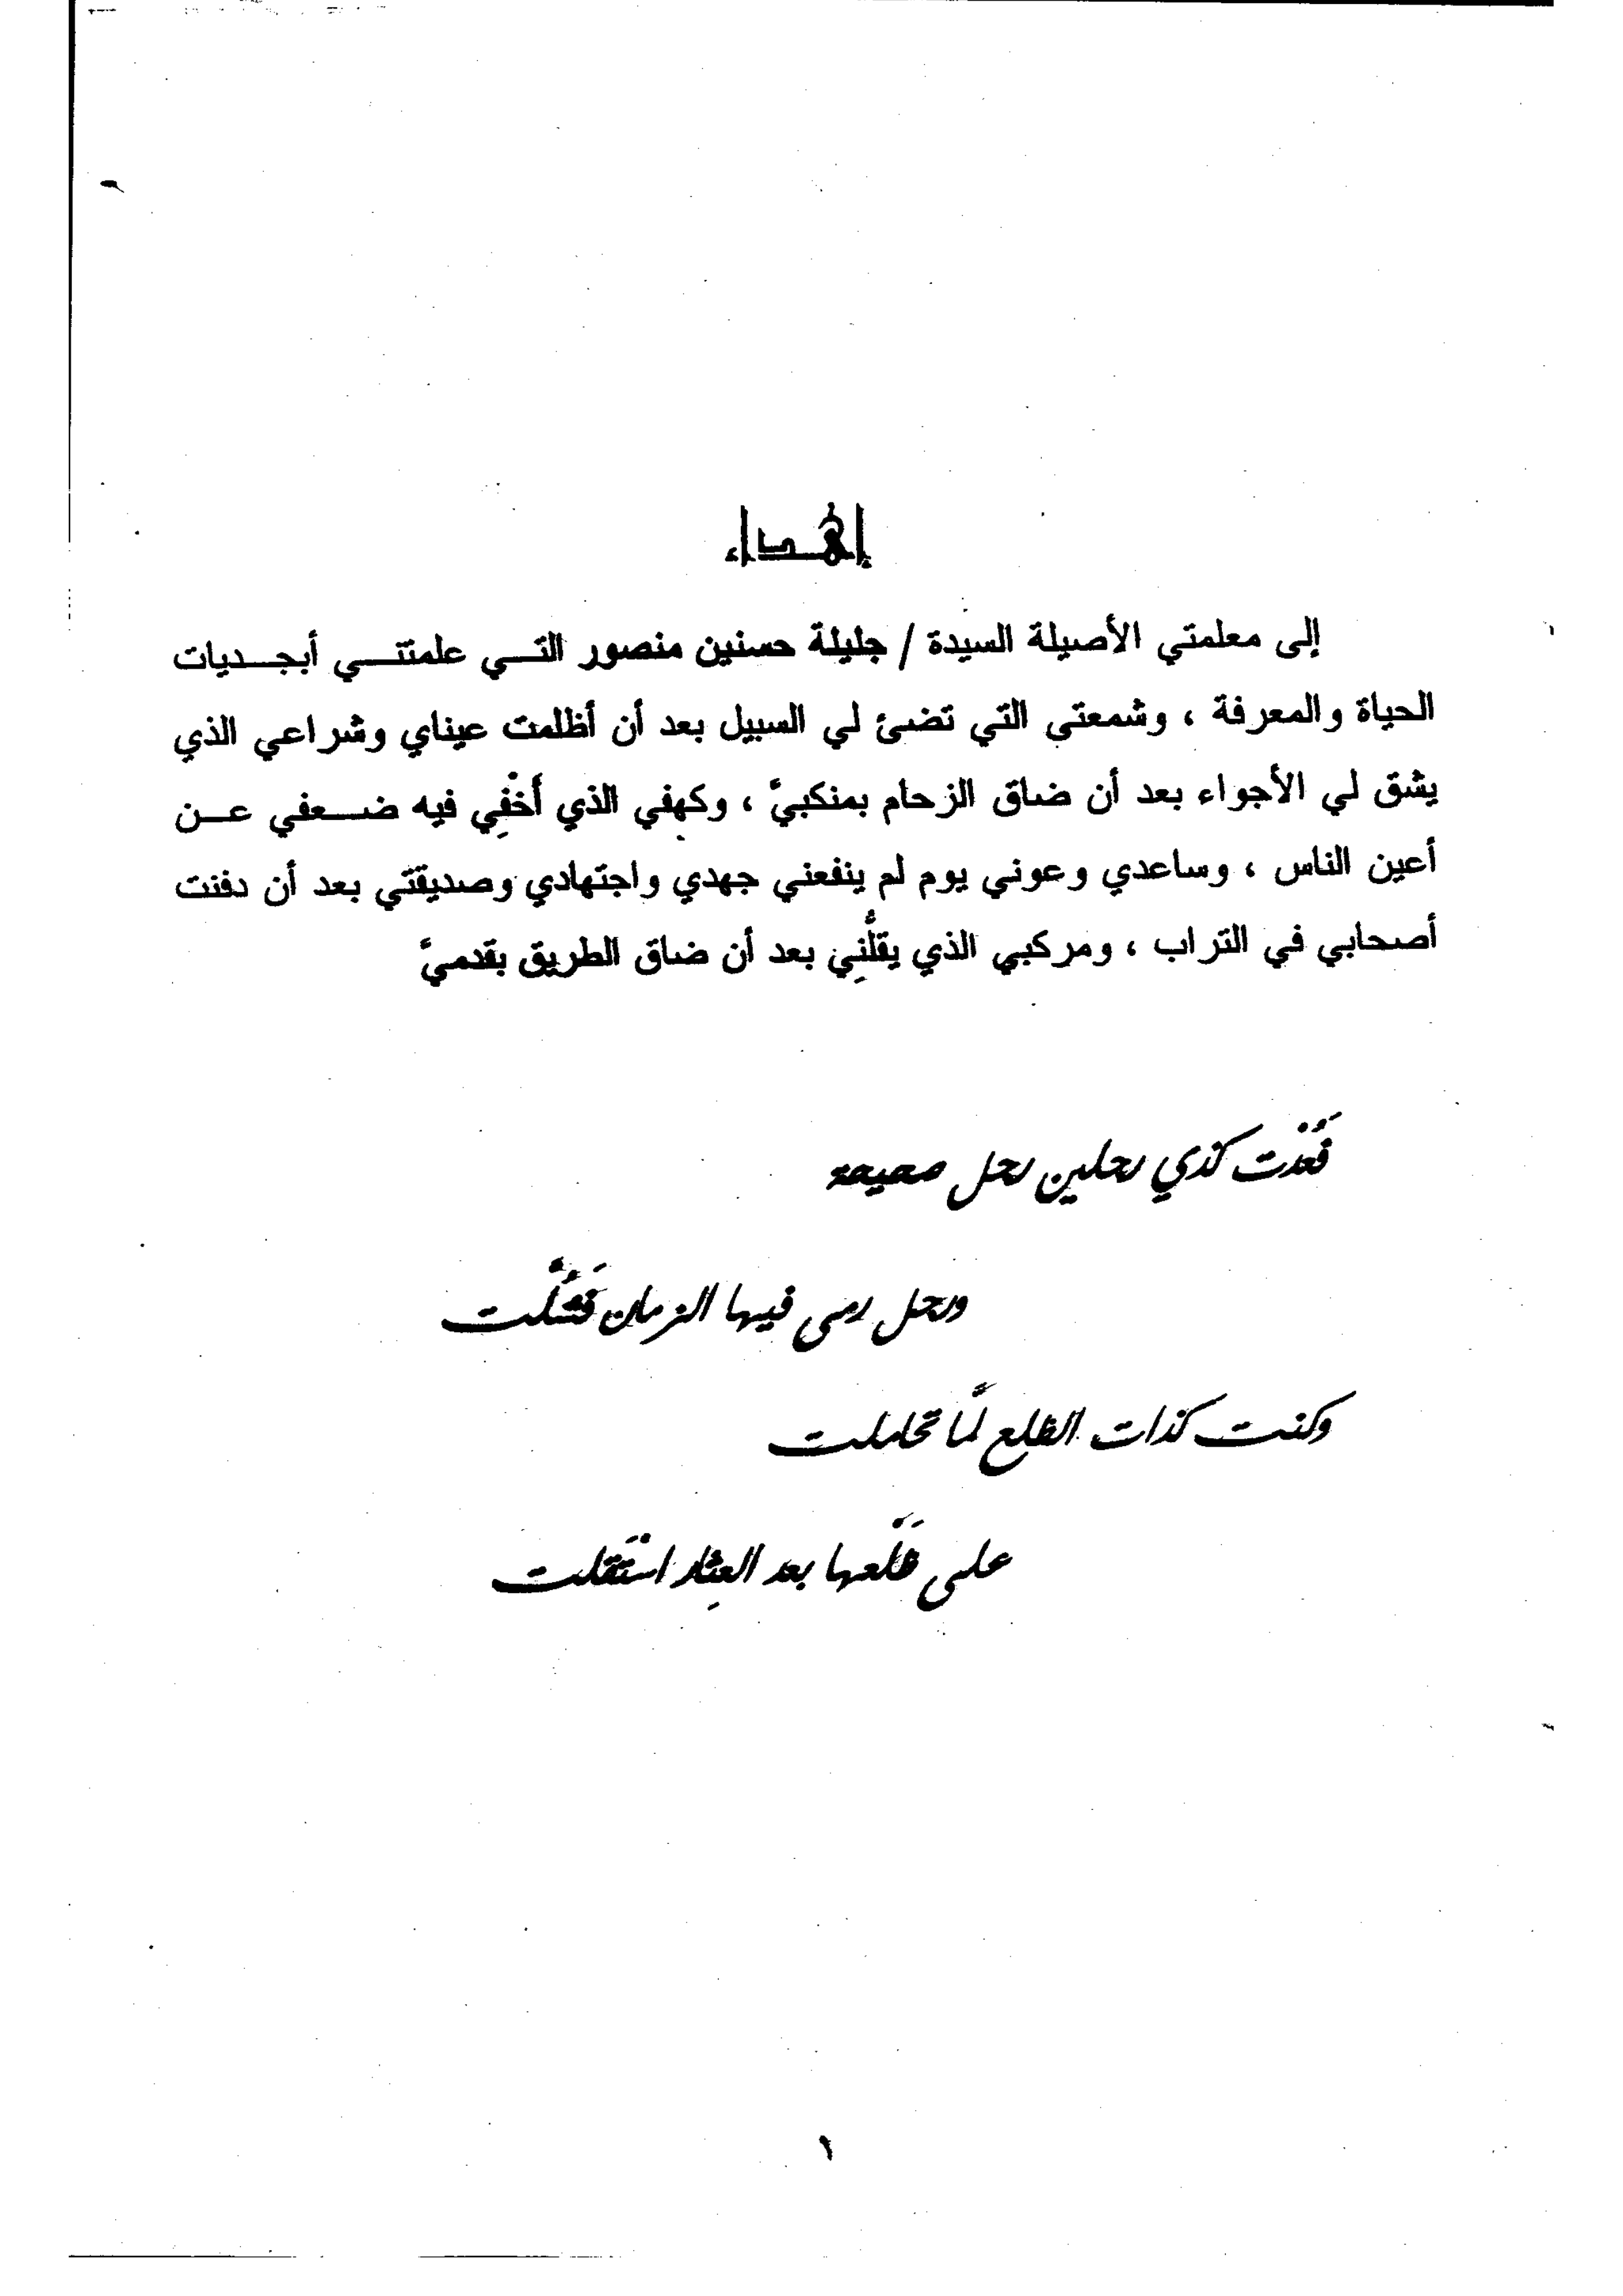 إهداء
إلى معلمتي الأصيلة السيدة / جليلة حسنين منصور التي علمتني أبجديات
الحياة والمعرفة ، وشمعتي التي تضئ لي السبيل بعد أن أظلمت عيناي وشراعي الذي
يشق لي الأجواء بعد أن ضاق الزحام بمنكبيَّ ، وكهفي الذي أخْفِي فيه ضعفي عن
أعين الناس ، وساعدي وعوني يوم لم ينفعني جهدي واجتهادي وصديقتي بعد أن دفنت
أصحابي في التراب ، ومركبي الذي يقلُّنِي بعد أن ضاق الطريق بقدميَّ
فَعُدْت كذي رجلين رجل صحيحة
ورجل رمى فيها الزمان فَشُلَّت
وكنت كذات الظلع لمَّا تحاملت
على ظَلْعها بعد العِثار استَقلت
١